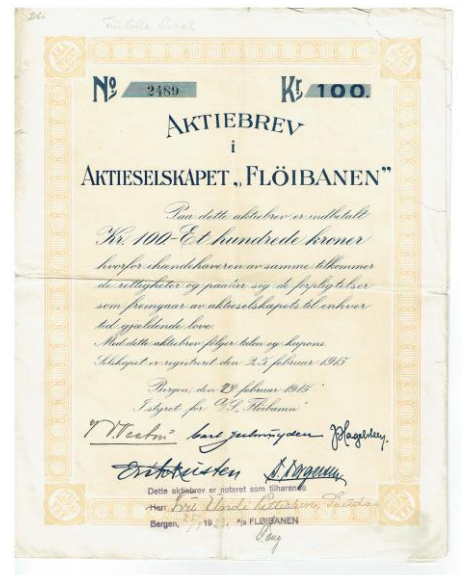 No 2489 Kr. 100.
AKTIEBREV
i
AKTIESELSKAPET „FLÖIBANEN”
Paa dette aktiebrev er indbetalt
Kr. 100 - Et hundrede kroner
hvorfor ihændehaveren av samme tilkommer
de rettigheter og paaøver sig de forpligtelser
som fremgaar av aktieselskapets til enhver
tid gjældende love.
Med dette aktiebrev følger talon og kupons.
Selskapet er registreret den 25 februar 1915
Bergen, den 27 februar 1915
I styret for A/S. Flöibanen
Dette aktiebrev er noteret som tilhørende
Bergen, 19 A/S FLØIBANEN